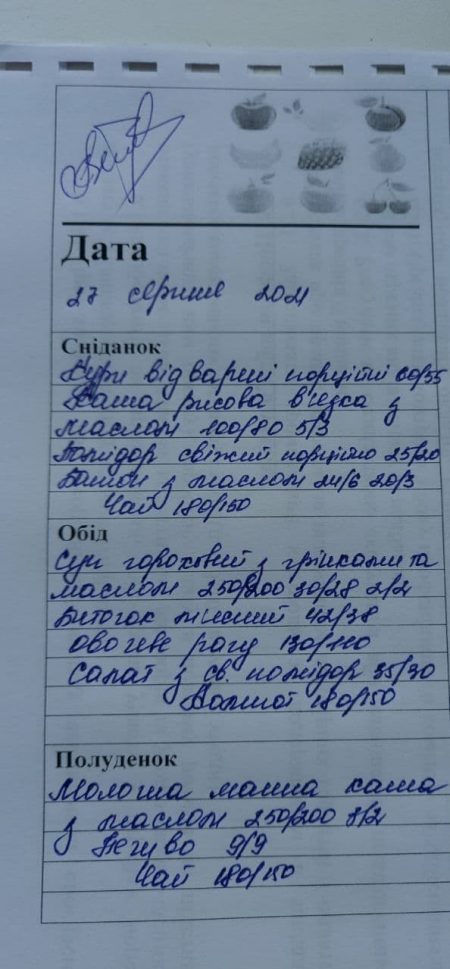 Дата
27 серпня 2021
Сніданок
Кури відварені порційні 60/55
Каша рисова в'язка з
маслом 100/80 5/3
Помідор свіжий порційно 25/20
Батон з маслом 24/6 20/3
Чай 180/150
Обід
Суп гороховий з грінками та
маслом 250/200 30/28 2/2
Биточок м'ясний 42/38
Овочеве рагу 130/110
Салат з св. помідор 35/30
Компот 180/150
Полуденок
Молочна манна каша
з маслом 250/200
Печиво 9/9
Чай 180/150